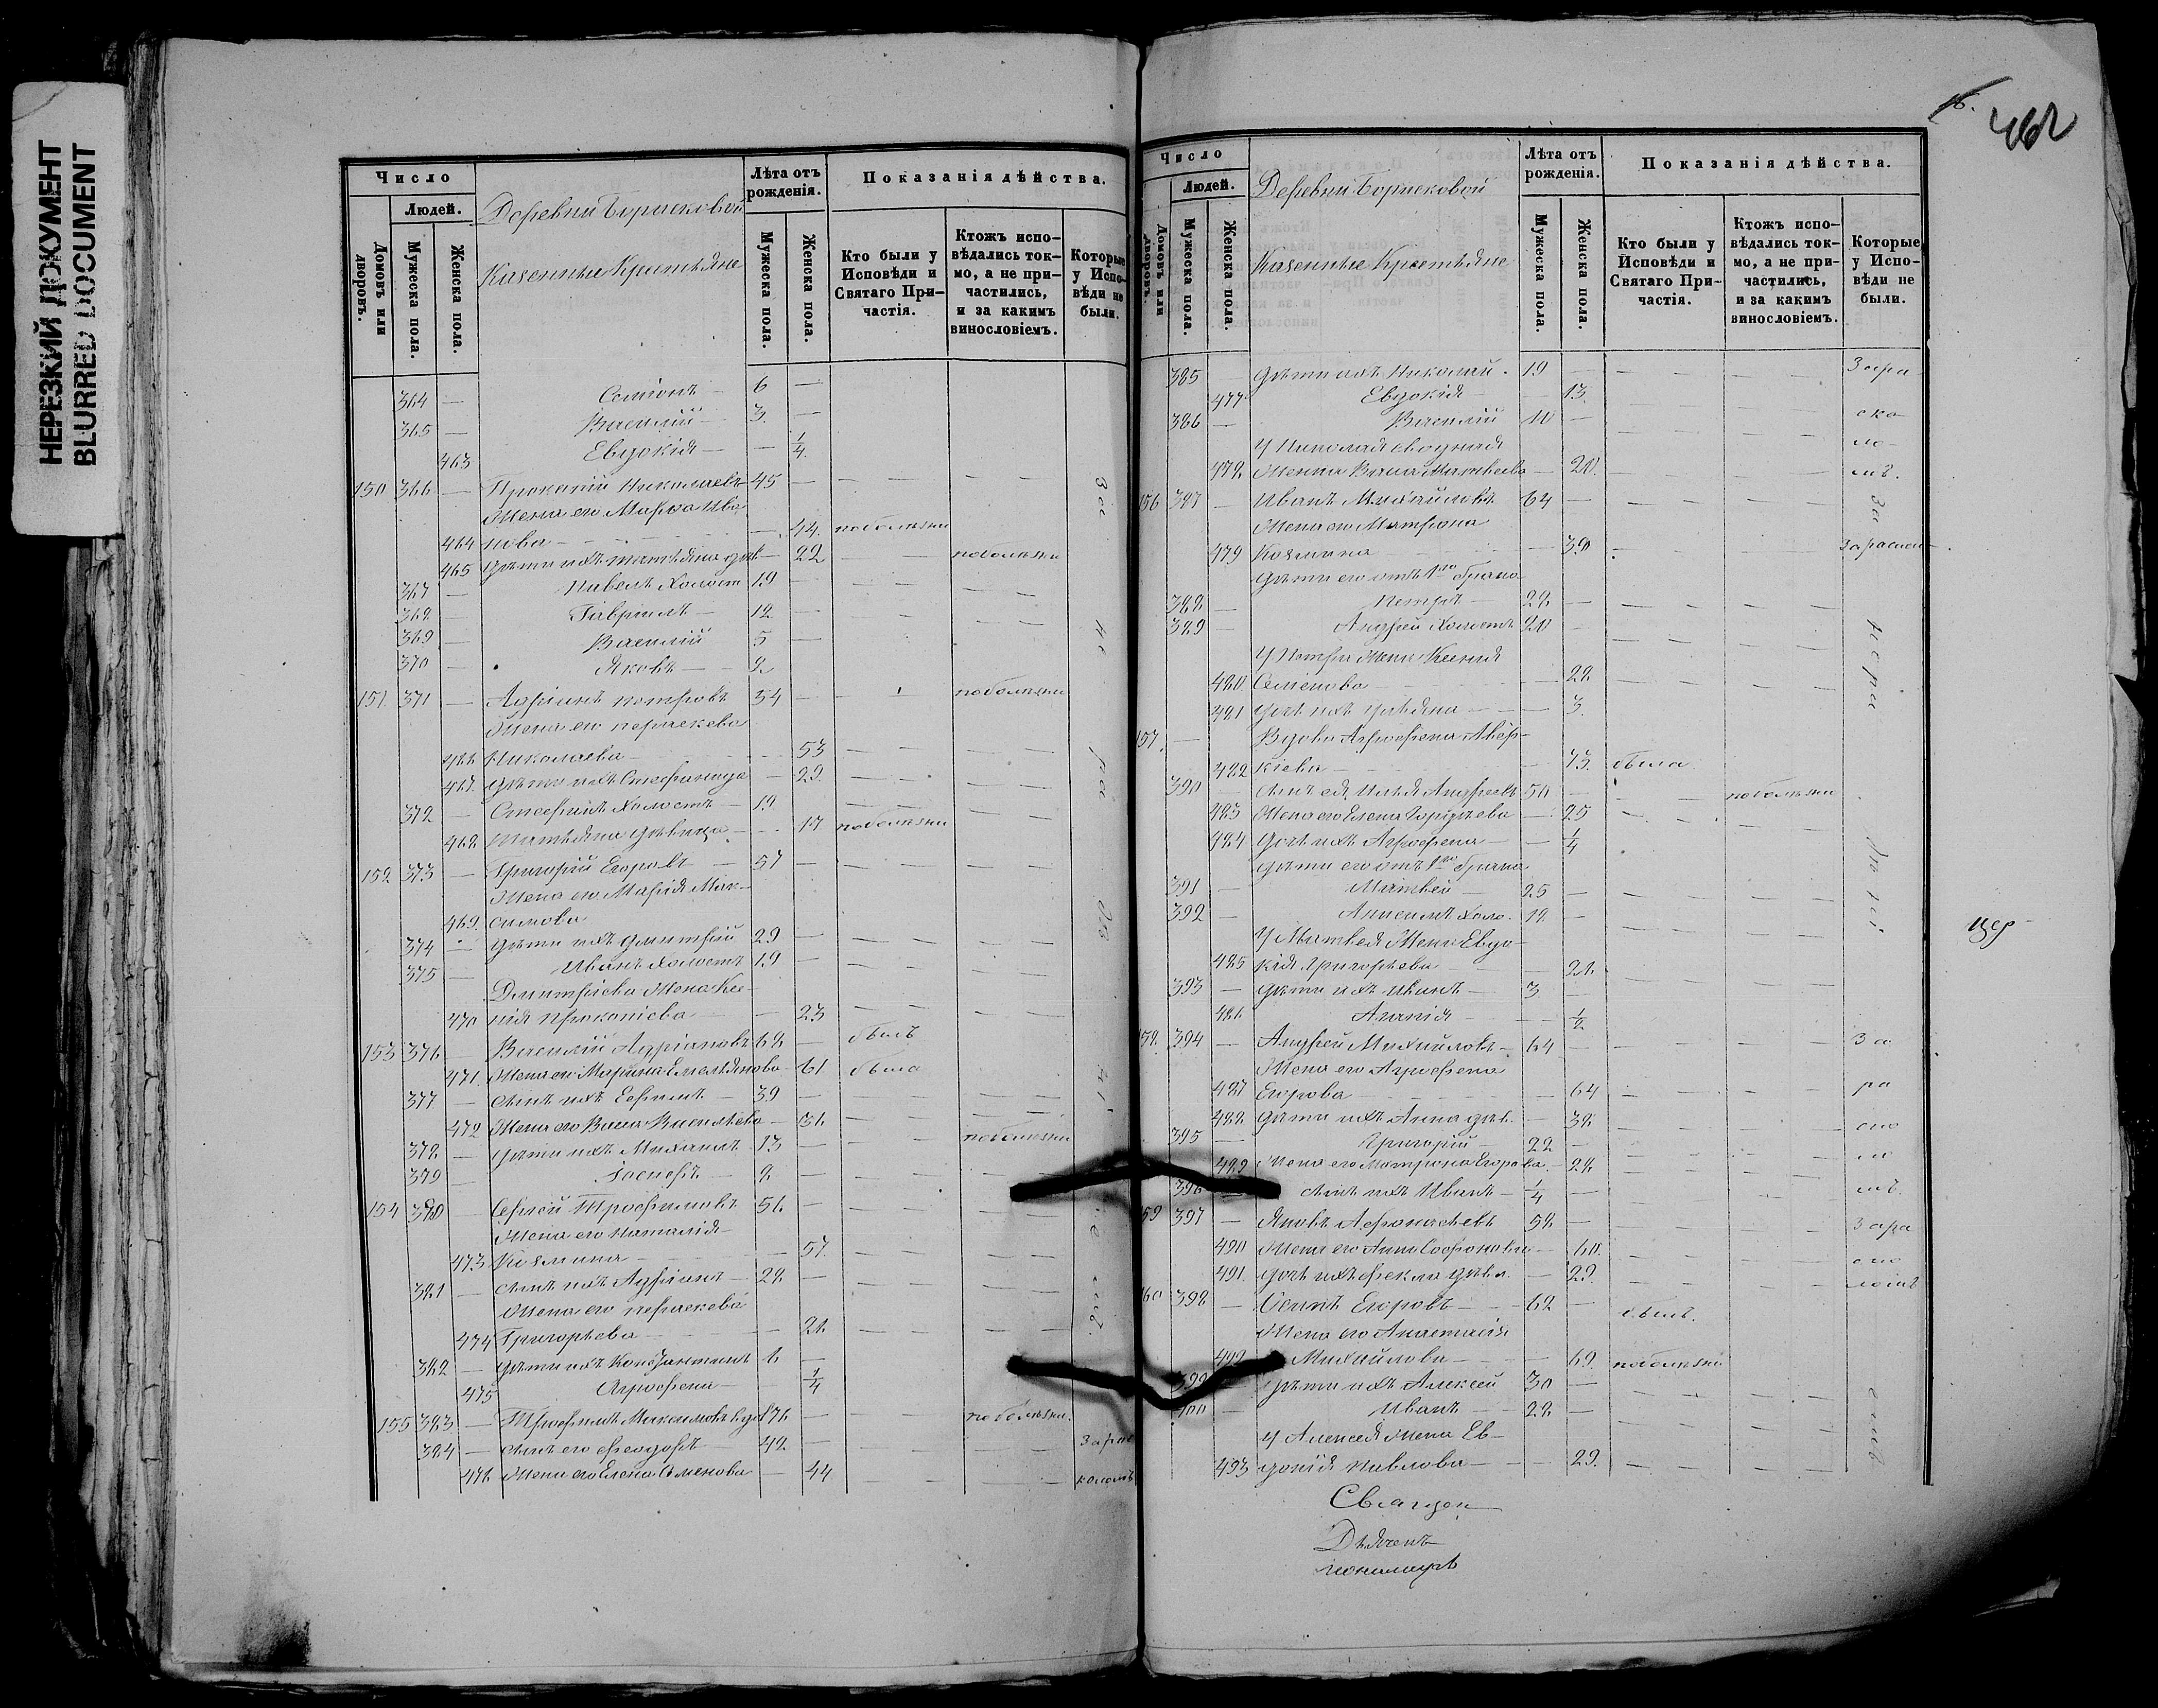 НЕРЕЗКИЙ ДОКУМЕНТ
BLURRED DOCUMENT
Число
Людей.
Домовъ или дворовъ.
Мужеска пола.
Женска пола.
Деревни
Казенные Крестьяне
Лѣта отъ рожденія.
Мужеска пола.
Женска пола.
Показанія дѣйства.
Кто были у Исповѣди и Святаго Причастія.
Ктожъ исповѣдались токмо, а не причастились, и за какимъ винословіемъ.
Которые у Исповѣди не были.
364 — Семіонъ — 6 —
365 — Василій — 3. —
463 Евдокія — — 1/4
150 366 — Прокопій Николаевъ 45 —
Жена его Марѳа Ива
464 нова — 44. по болѣзни
465 дѣти ихъ Татьяна дѣв — 22 по болѣзни
367 — Павелъ Холост 19
368 — Гавріилъ — 12 —
369 — Василій 5 —
370 — Яковъ — 2
151. 371 — Адріанъ Петровъ 54 — по болѣзни
Жена его Параскева
466 Николаева — 53
467. дѣти ихъ Стефанида — 29.
372 — Стефанъ Холостъ — 19
468. Татьяна дѣвица — 17 по болѣзни
152 373 — Григорій Егоровъ — 57 —
Жена его Марія Мак-
469. симова
374 — дѣти ихъ Димитрій 29 —
375 — Иванъ Холостъ 19 —
Димитріева Жена Ксе-
470 нія Прокопіева — 23
153 376 — Василій Адріановъ 62 — былъ
471. Жена его Марина Емельянова — 61 была
377 — сынъ ихъ Ефимъ — 39 —
472 Жена его Васса Васильева — 36
378 — дѣти ихъ Михаилъ 13 — по болѣзни
379 — Іосифъ — 2 —
154 380 — Сергій Трофимовъ 56 —
Жена его Наталія
473 Козмина — 57.
381 — сынъ ихъ Адріанъ — 28 —
Жена его Параскева
474 Григорьева — 26
382 — дѣти ихъ Константинъ 6 —
475 Агрофена — 1/4
155 383 — Трофимъ Максимовъ вдов 76 — по болѣзни.
384 — сынъ его Феодоръ 42 — За рас
476 Жена его Елена Семенова — 44 коломъ
За
не
ра
дѣ
ні
е
мъ
15.
462
Число
Людей.
Домовъ или дворовъ.
Мужеска пола.
Женска пола.
Деревни
Казенные Крестьяне
Лѣта отъ рожденія.
Мужеска пола.
Женска пола.
Показанія дѣйства.
Кто были у Исповѣди и Святаго Причастія.
Ктожъ исповѣдались токмо, а не причастились, и за какимъ винословіемъ.
Которые у Исповѣди не были.
385 — дѣти ихъ Николай. 19 — За ра
477 Евдокія — 13.
386 — Василій 10 — ско
У Николая
ло
478 Жена Васса Матвеева — 20. мъ.
156 387 — Иванъ Михайловъ 64 — За
Жена его Матрона
479 Козмина — 39
дѣти его отъ 1го брака
388 — Петръ — 28 —
389 — Андрей Холостъ 20 — нера
У Петра Жена Ксенія
480 Семенова — 28
481 дочь ихъ Ульяна — 3.
157. — Вдова Агрофена Авер-
482 кіева — 73. была
390 — сынъ ея Илья Андреевъ 50 — по болѣзни
483 Жена его Елена — 25
484 дочь ихъ Агрофена — 1/4
дѣти его отъ 1го брака
391 — Матвей — 25 —
392 — Анисимъ Холо. 18 —
У Матвея Жена Евдо-
485 кія Григорьева — 26
393 — дѣти ихъ Иванъ — 3 —
486 Агапія — 1/2
158. 394 — Андрей Михайловъ — 64 — За
Жена его Агрофена
487 Егорова — 64 ра
488 дѣти ихъ Анна дѣв. — 38
395 — Григорій — 22 —
489 Жена его Матрона Егорова — 28 ло
396 — сынъ ихъ Иванъ — 1/4 — мъ.
159 397 — Яковъ Афонасьевъ 58 — За ра
490 Жена его Анна Софронова — 60.
491. дочь ихъ Фекла дѣви. — 29.
160 398 — Осипъ Егоровъ — 62 — былъ.
Жена его Анастасія
492 Михайлова — 69. по болѣзни
399 — дѣти ихъ Алексей 30 —
400 — Иванъ — 22 —
У Алексея Жена Ев-
493 докія Павлова — 29.
дѣні
емъ
цер
Священ
Дьячекъ
пономарь